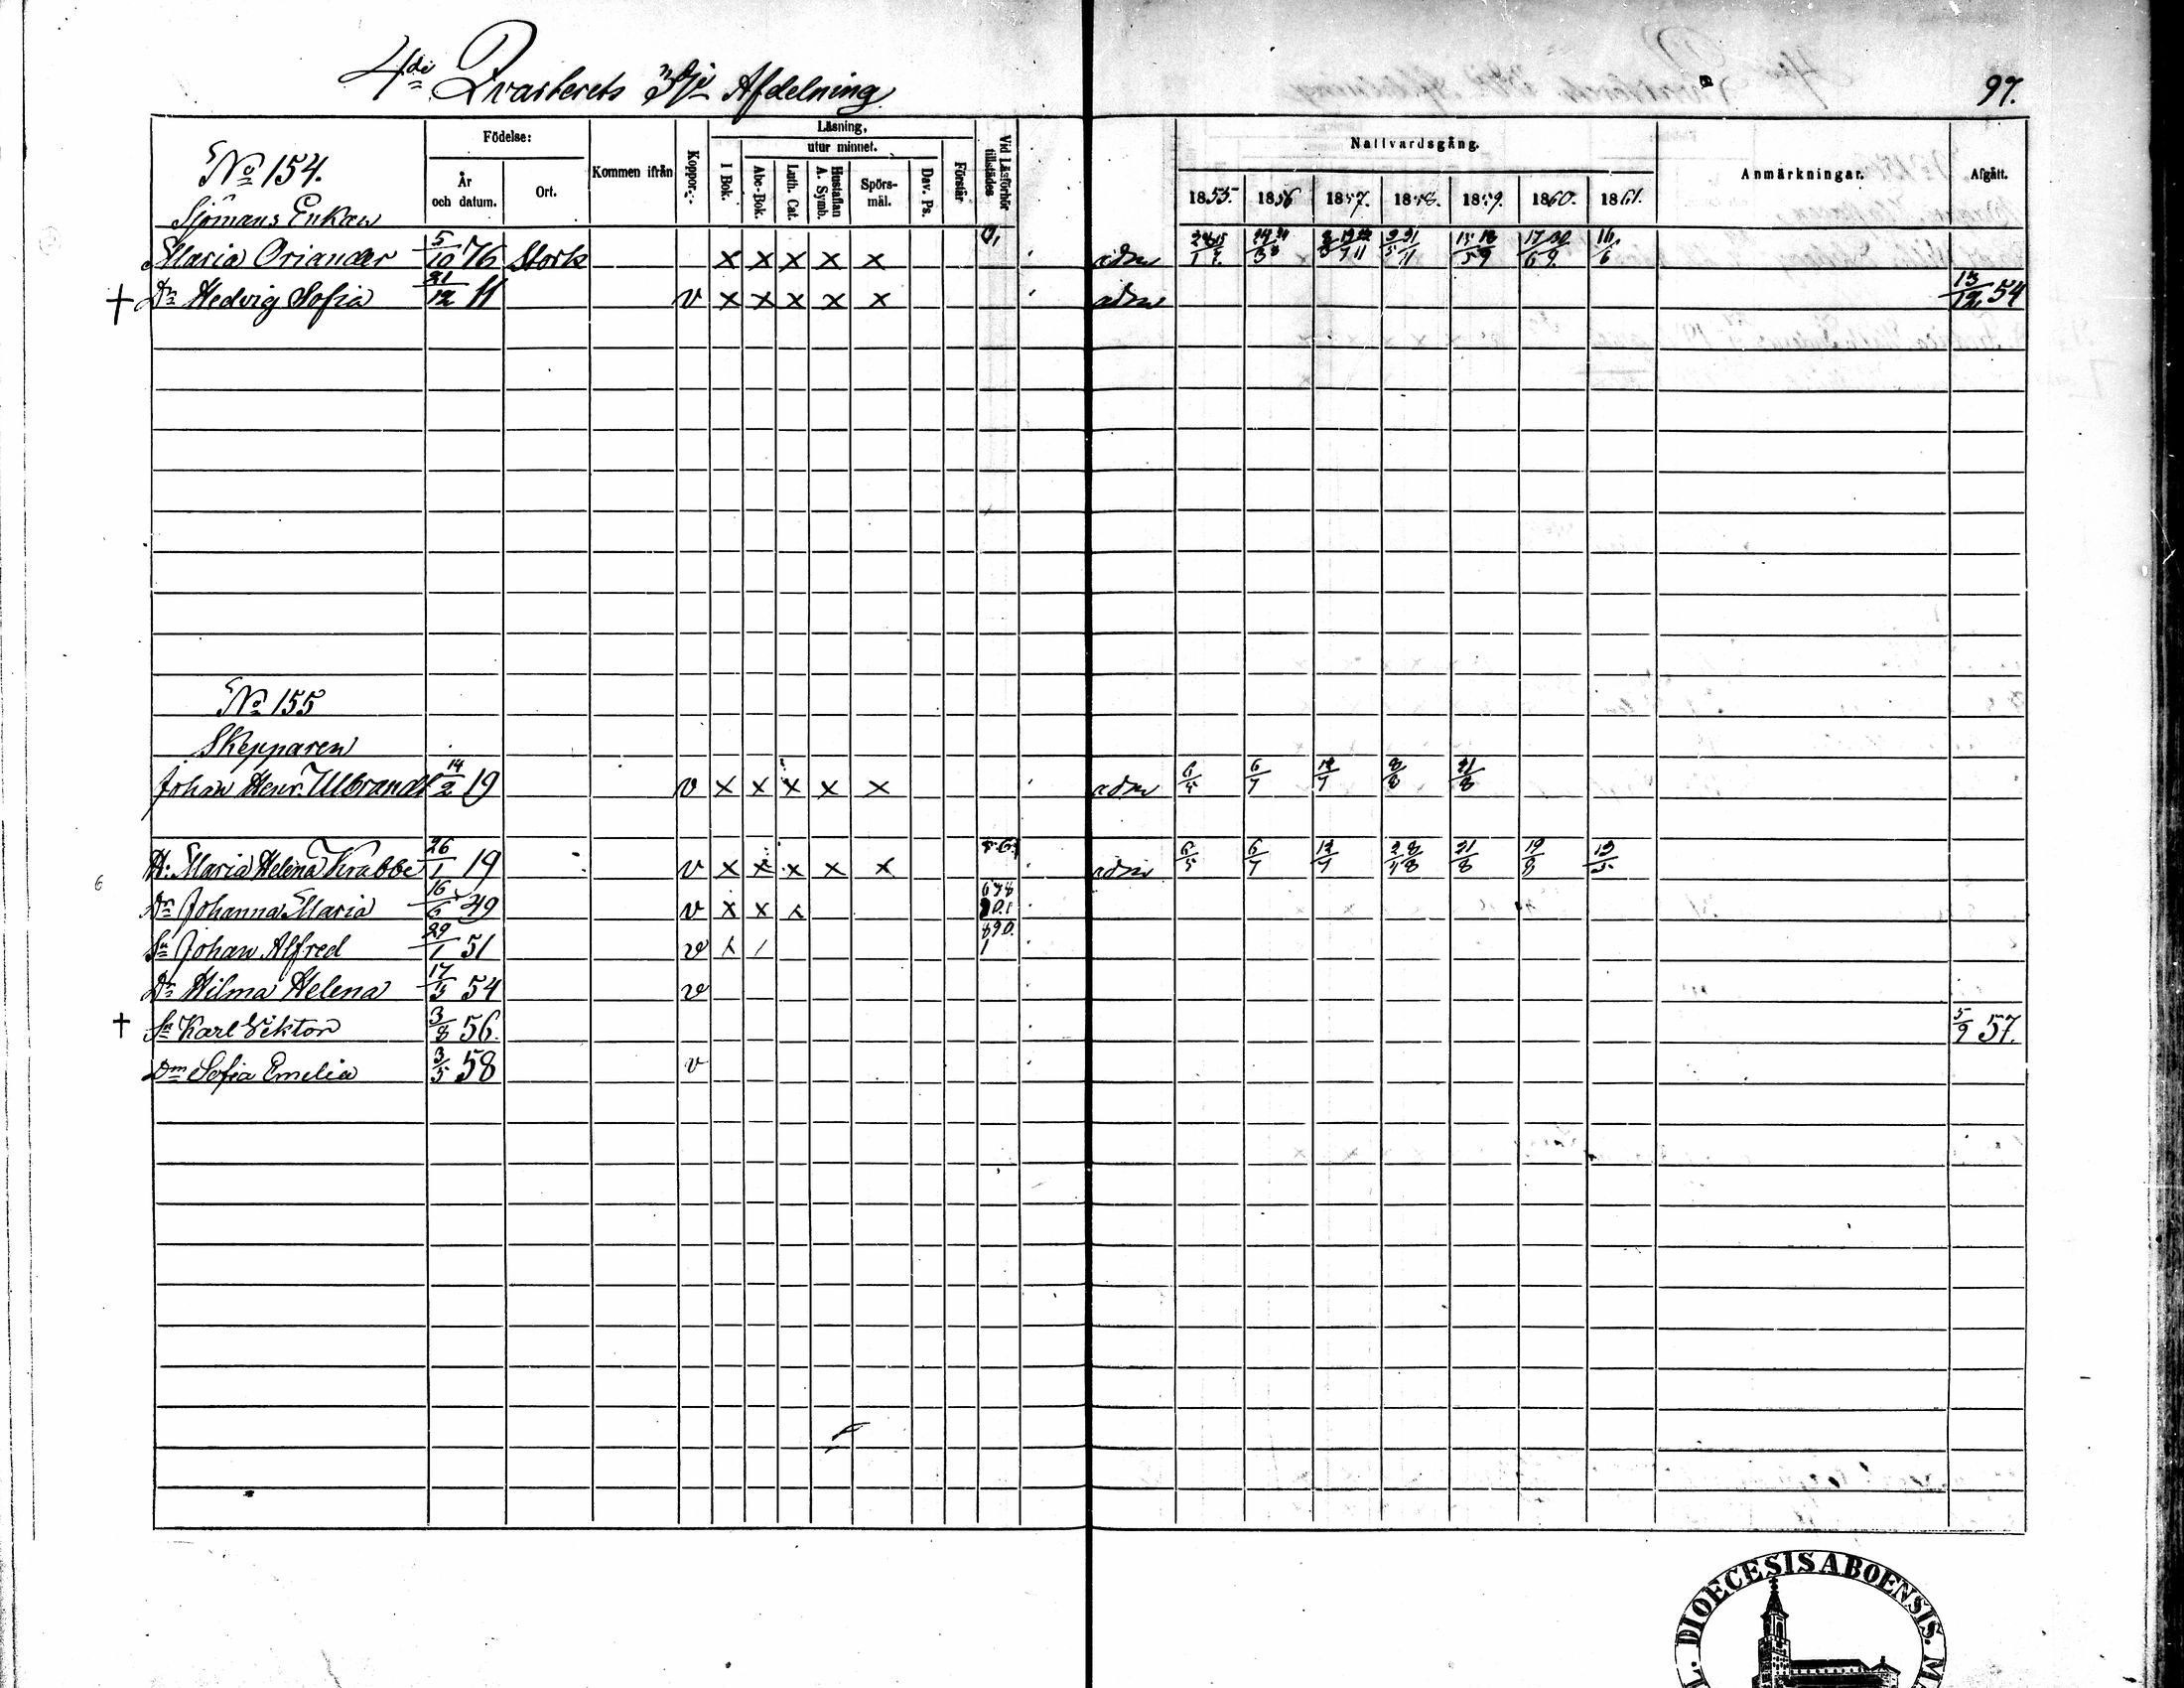 4de Qvarterets 3dje Afdelning
97.
Födelse:
Läsning,
utur minnet.
Nattvardsgång.
No 154.
År och datum.
Ort.
Kommen ifrån
Koppor.
I Bok.
Abc-Bok.
Luth. Cat.
Hustaflan A. Symb.
Spörsmål.
Dav. Ps.
Förstår
Vid Läsförhör tillstädes
1855. 1856 1857. 1858. 1859. 1860. 1861.
Anmärkningar.
Afgått.
Sjömans Enkan
Maria Oriander 5/10 76 Stork x x x x x adm 16/6
† Dr Hedvig Sofia 21/12 11 v x x x x x adm 13/12 54
No 155
Skepparen
Johan Henr. Ulbrandt 14/2 19 v x x x x x adm 6/5 6/7 12/7 8/8 21/8
H: Maria Helena Krabbe 26/1 19 v x x x x x adm 6/5 6/7 12/7 21/8 19/8
6
Dr Johanna Maria 16/6 49 v x x x
Sn Johan Alfred 29/1 51 v
Dr Hilma Helena 17/3 54 v
† Sn Karl Viktor 3/8 56. 5/9 57.
Dm Sofia Emelia 3/5 58 v
DIOECESIS ABOENSIS.